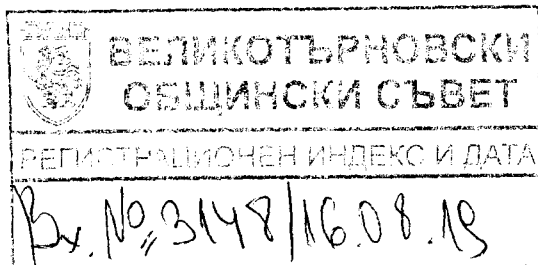 ВЕЛИКОТЪРНОВСКИ
ОБЩИНСКИ СЪВЕТ
РЕГИСТРАЦИОНЕН ИНДЕКС И ДАТА
Вх. № 3148/16.08.19